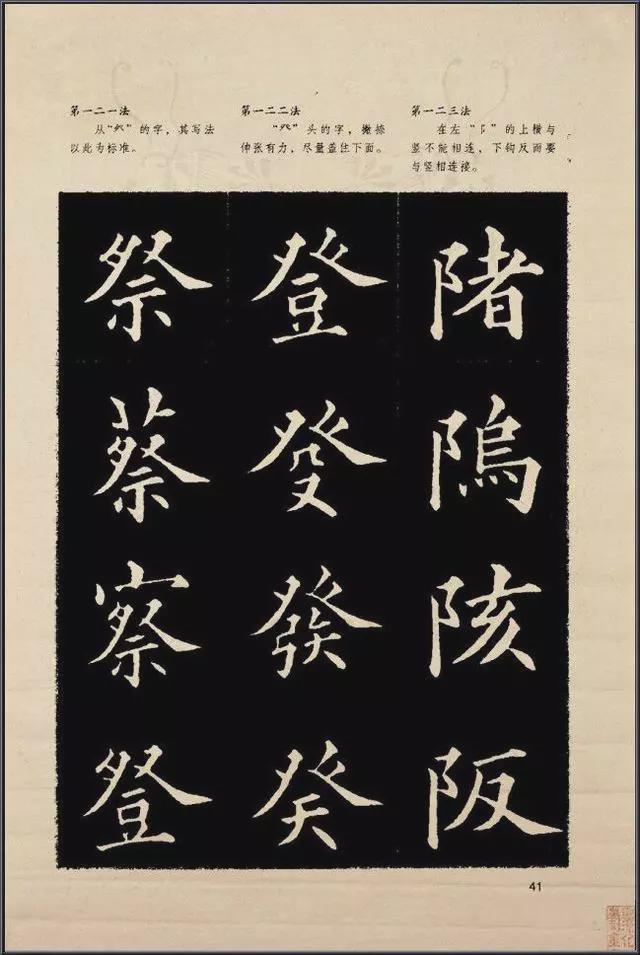 第一二一法
从“”的字,其写法
以此为标准。
第一二二法
“癶”头的字,撇捺
伸张有力,尽量盖住下面。
第一二三法
在左“阝”的上横与
竖不能相连,下钩反而要
与竖相连接。
祭蔡察豋
登癹發癸
陼隖陔阪
41